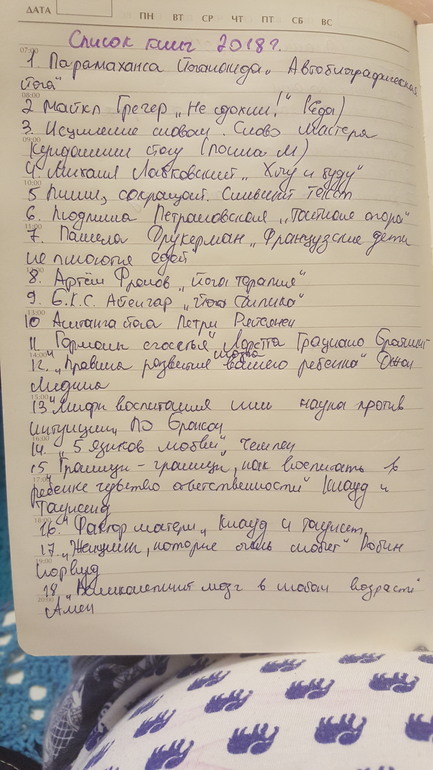 ДАТА ПН ВТ СР ЧТ ПТ СБ ВС
Список книг 2018 г.
07:00
1. Парамаханса Йогананда „Автобиографическая
йога"
08:00
2 Майкл Грегер „Не сдохни!" (Еда)
3. Исцеление словом. Слово Мастера
09:00
(пошла м)
4. Михаил Лабковский „Хочу и буду"
10:00
5 Пиши, сокращай. Сильный текст
6. Людмила Петрановская „Тайная опора"
11:00
7. Памела Друкерман „Французские дети
не плюются едой"
8. Артём Фролов „Йога терапия"
9. Б.К.С. Айенгар
13:00
10 Аштанга йога Петри Ряйсянен
11 Гормоны счастья" Лоретта Грациано Бройнинг
14:00
12. „Правила развития мозга вашего ребенка" Джон
Медина
15:00
13 „Мифы воспитания или наука против
интуиции" ПО Бронсон
16:00
14. „5 языков любви" Чемпен
15 „Границы - границы, как воспитать в
17:00
ребенке чувство ответственности" Клауд и
Таунсенд
18:00
16. „Фактор матери" Клауд и Таунсенд
17. „Женщины, которые очень любят" Робин
19:00
Норвуд
18 „Великолепный мозг в любом возрасте"
20:00
Амен